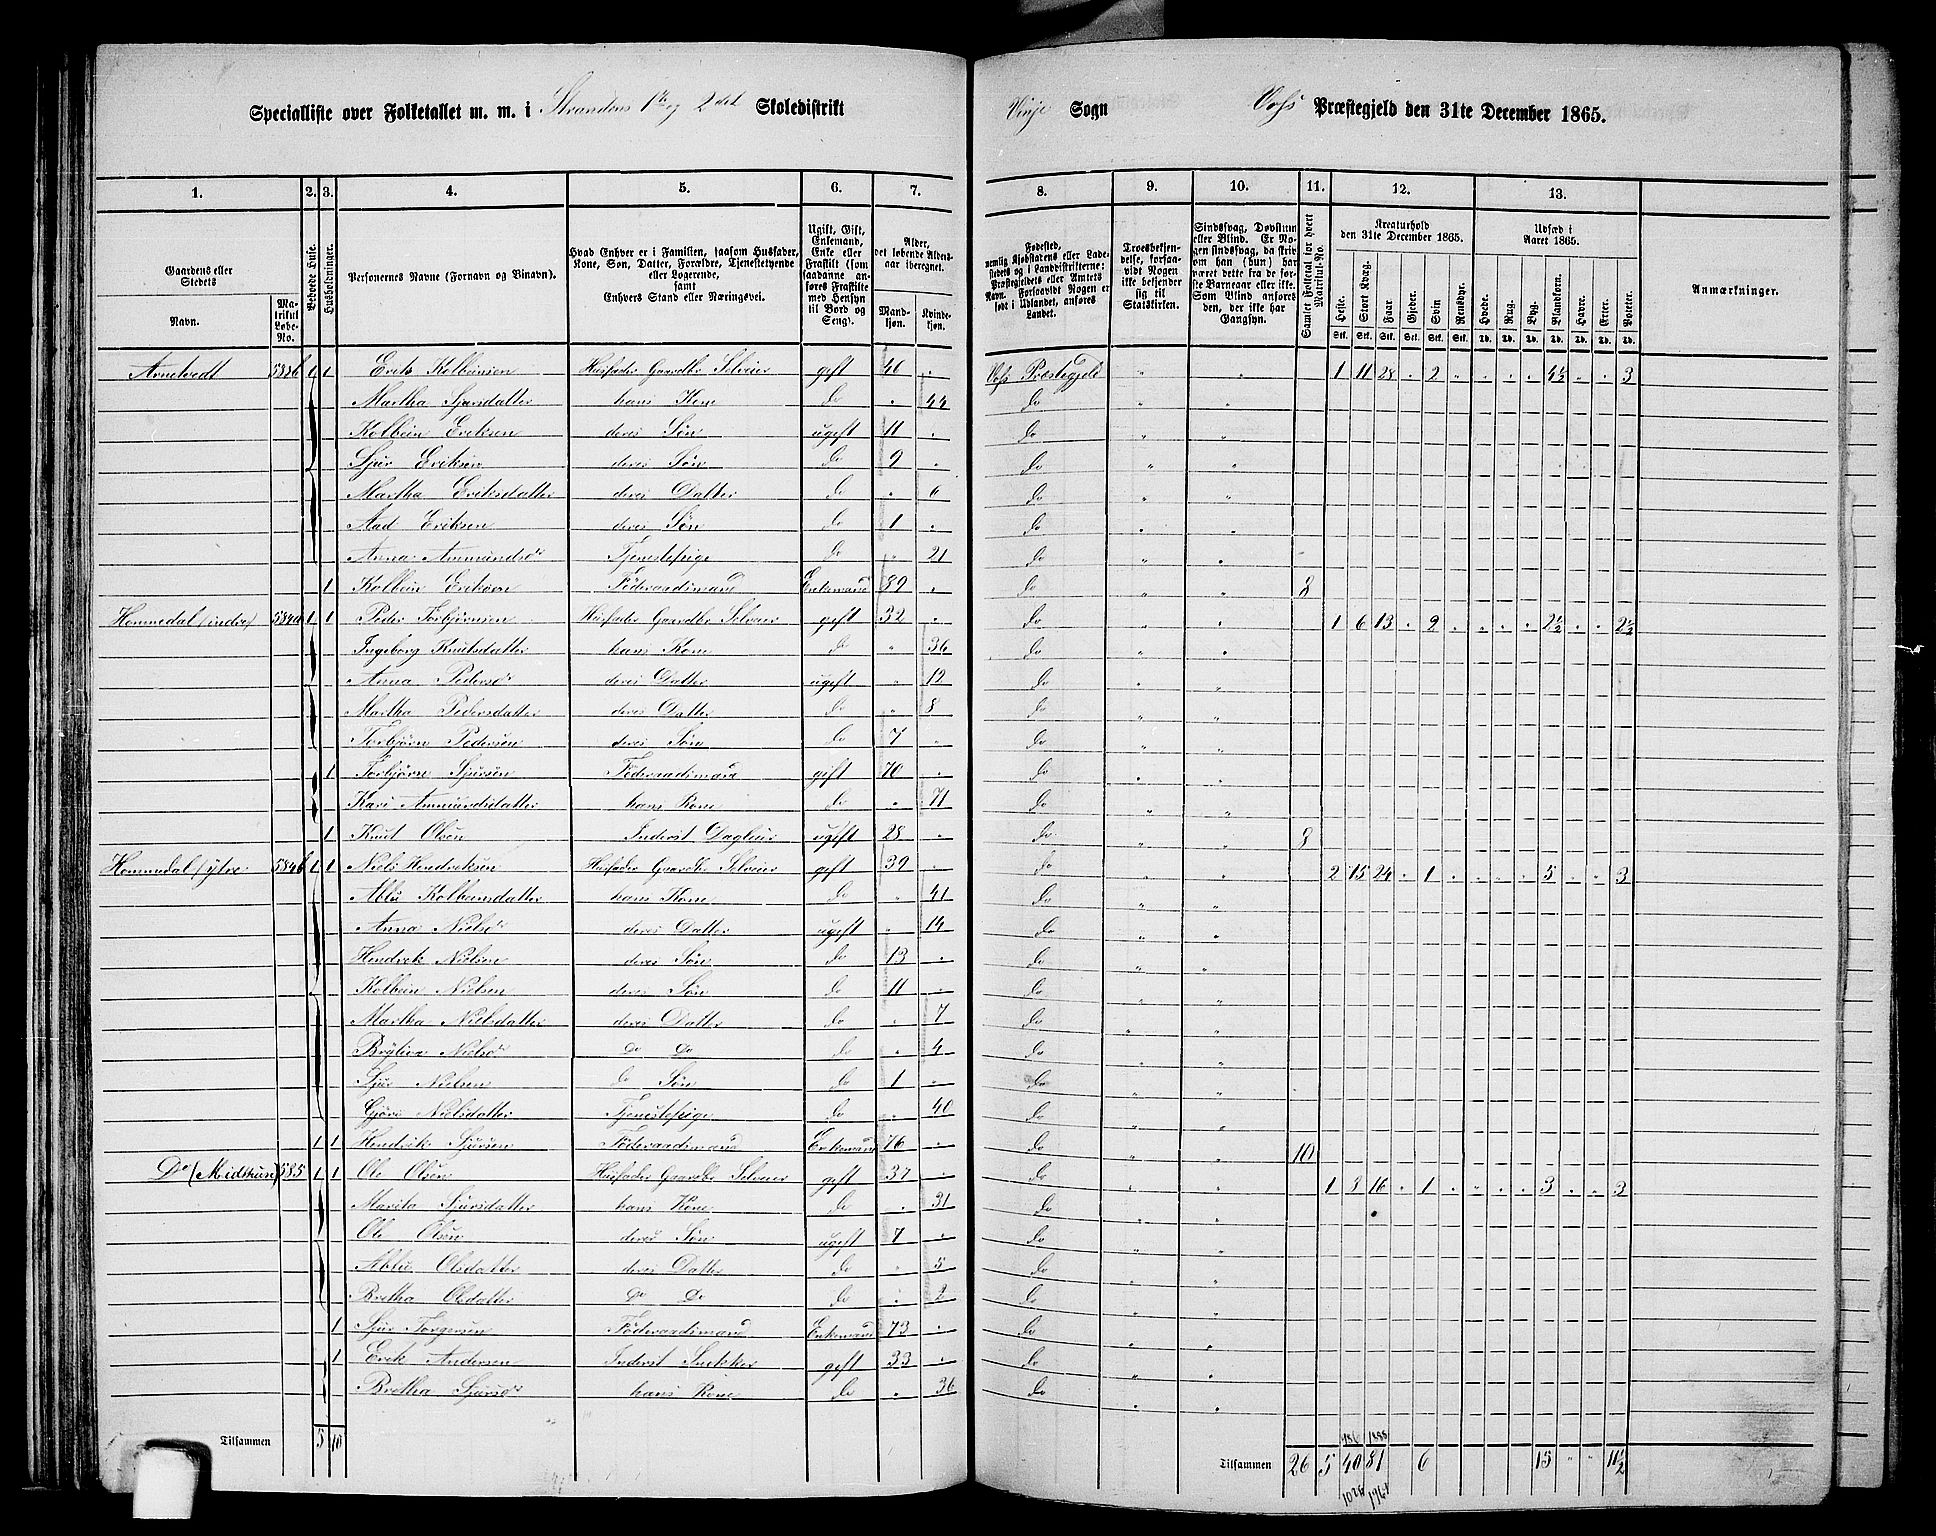 Specialliste over Folketallet m. m. i Strandens 1te og 2det Skoledistrikt
Vinje Sogn Voss Præstegjeld den 31te December 1865.
1. 2. 3. 4. 5. 6. 7. 8. 9. 10. 11. 12. 13.
Gaardens eller Stedets
Navn.
Matrikul Løbe-No.
Beboede Huse.
Husholdninger.
Personernes Navne (Fornavn og Binavn).
Hvad Enhver er i Familien, saasom Husfader, Kone, Søn, Datter, Forældre, Tjenestetyende eller Logerende, samt Enhvers Stand eller Næringsvei.
Ugift, Gift, Enkemand, Enke eller Fraskilt (som saadanne anføres Fraskilte med Hensyn til Bord og Seng).
Alder, det løbende Aldersaar iberegnet.
Mandkjøn. Kvindekjøn.
Fødested, nemlig Kjøbstadens eller Ladestedets og i Landdistrikterne: Præstegjeldets eller Amtets Navn. Forsaavidt Nogen er født i Udlandet, anføres Landet.
Troesbekjendelse, forsaavidt Nogen ikke bekjender sig til Statskirken.
Sindssvag, Døvstum eller Blind. Er Nogen sindssvag, da skrives om han (hun) har været dette fra de første Barneaar eller ikke. Som Blind anføres den, der ikke har Gangsyn.
Samlet Folketal for hvert Matrikul-No.
Kreaturhold den 31te December 1865.
Heste. Stort Kvæg. Faar. Gjeder. Svin. Rensdyr.
Udsæd i Aaret 1865.
Hvede. Rug. Byg. Blandkorn. Havre. Erter. Poteter.
Stk. Stk. Stk. Stk. Stk. Stk. Td. Td. Td. Td. Td. Td. Td.
Anmærkninger.
Arnetvedt 583b 1 1 Erik Kolbeinsen Husfader Gaardbr Selveier gift 46 " Voss Præstegjeld " " 1 11 28 " 2 " " " " 4½ " " 3
Martha Sjursdatter hans Kone do " 44 do
Kolbein Eriksen deres Søn ugift 11 " do " "
Sjur Eriksen deres Søn do 9 " do " "
Martha Eriksdatter deres Datter do " 6 do " "
Aad Eriksen deres Søn do 1 " do " "
Anna Ammundsdr Tjenestepige do " 21 do " "
1 Kolbein Eriksen Föderaadsmand Enkemand 89 " do " " 8
Hommedal (indre) 584a 1 1 Peder Torbjörnsen Husfader Gaardbr Selveier gift 32 " do " " 1 6 13 " 2 " " " " 2½ " " 2½
Ingeborg Knutsdatter hans Kone do " 36 do " "
Anna Pedersdr deres Datter ugift " 12 do " "
Martha Pedersdatter deres Datter do " 8 do " "
Torbjörn Pedersen deres Søn do 7 " do " "
1 Torbjörn Sjursen Föderaadsmand gift 70 " do " "
Kari Ammundsdatter hans Kone do " 71 do " "
1 Knut Olsen Inderst Dagleier ugift 28 " do " " 8
Hommedal (ytre 584b 1 1 Niels Hendriksen Husfader Gaardbr Selveier gift 39 " do " " 2 15 24 " 1 " " " " 5 " " 3
Ablu Kolbeinsdatter hans Kone do " 41 do " "
Anna Nielsdr deres Datter ugift " 14 do " "
Hendrik Nielsen deres Søn do 13 " do " "
Kolbein Nielsen deres Søn do 11 " do " "
Martha Nielsdatter deres Datter do " 7 do " "
Brytiva Nielsdr Do Do do " 4 do " "
Sjur Nielsen do Søn do 1 " do " "
Gjöri Nielsdatter Tjenestepige do " 40 do " "
1 1 Hendrik Sjursen Föderaadsmand Enkemand 76 " do " " 10
Do (Midthun) 585 1 1 Ole Olsen Husfader Gaardbr Selveier gift 37 " do " " 1 8 16 " 1 " " " " 3 " " 3
Marita Sjursdatter hans Kone do " 31 do " "
Ole Olsen deres Søn ugift 7 " do " "
Ablu Olsdatter deres Datter do " 5 do " "
Bretha Olsdatter Do Do do " 2 do " "
1 Sjur Torgersen Föderaadsmand Enkemand 73 " do " "
1 Erik Andersen Inderst Snekker gift 33 " do " "
Bretha Sjursdr hans Kone do " 36 do " "
Tilsammen 5 10
Tilsammen 26 5 40 81 " 6 15 " " 11½